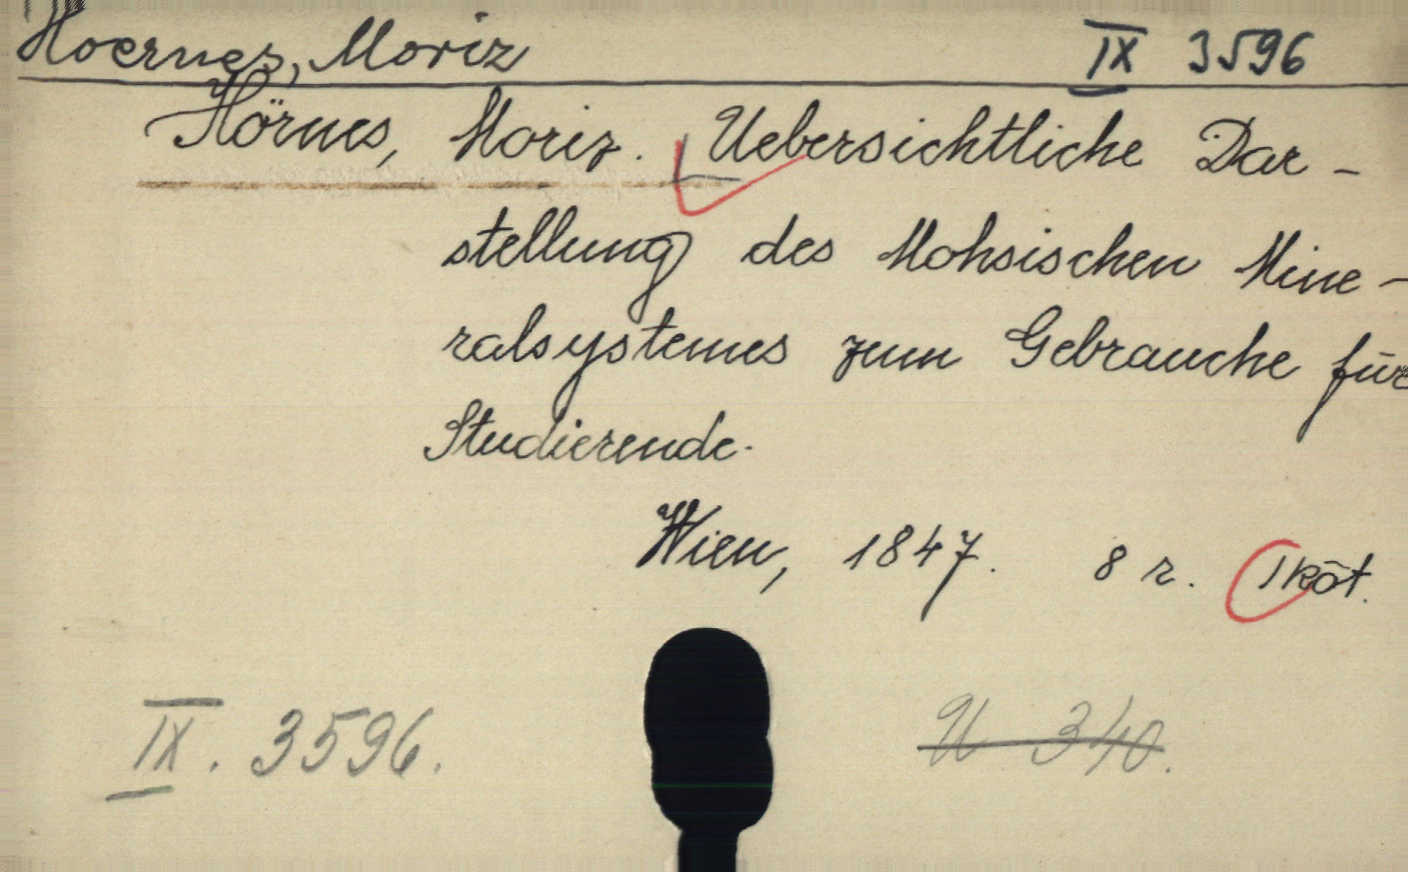 Hoernes, Moriz IX 3596
Hörnes, Moriz. Uebersichtliche Dar-
stellung des Mohsischen Mine-
ralsystemes zum Gebrauche für
Studierende.
Wien, 1847. 8 r. 1 köt.
IX. 3596. U 340.